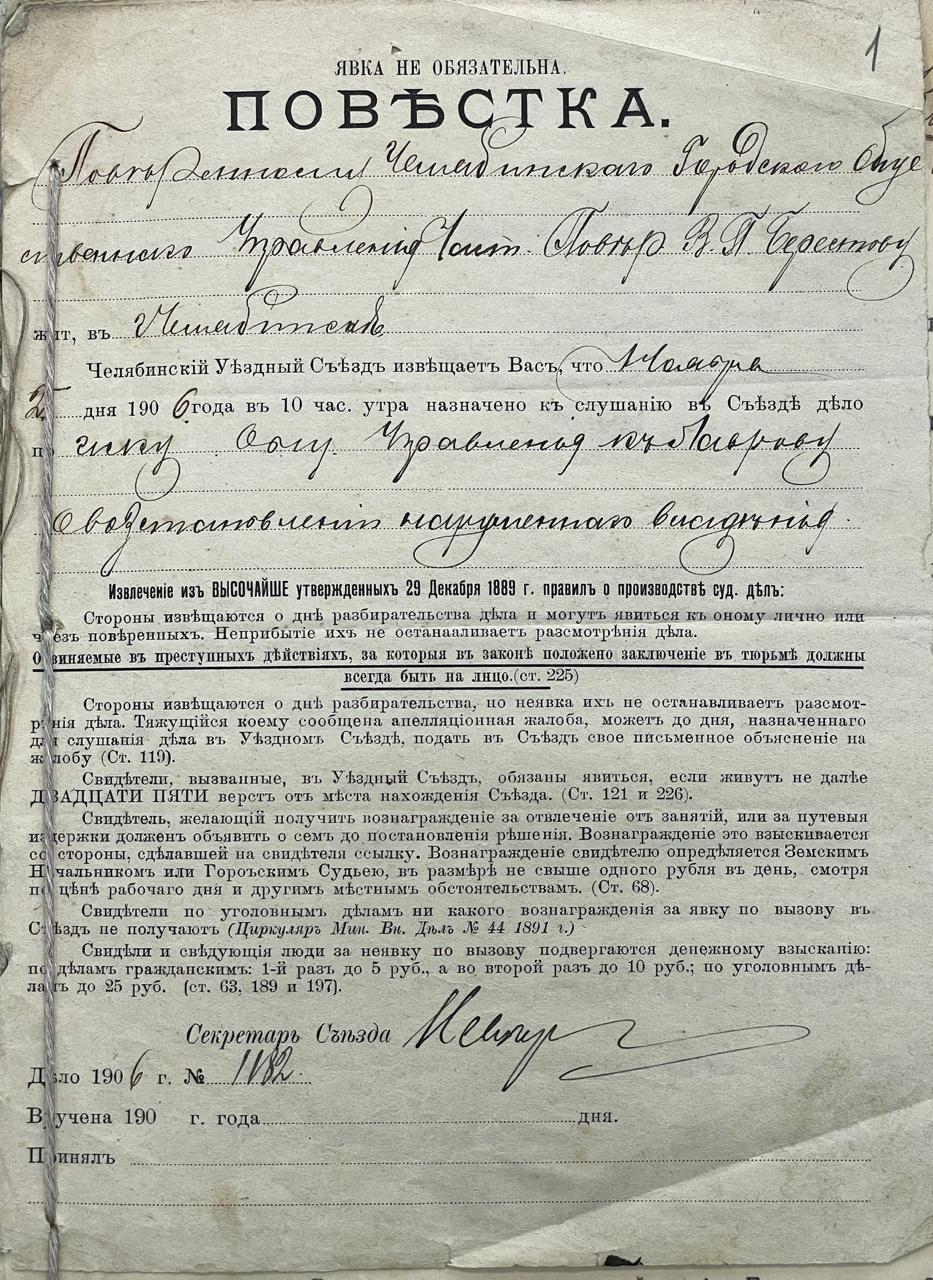 1
ЯВКА НЕ ОБЯЗАТЕЛЬНА.
ПОВѢСТКА.
Повѣренному Челябинскаго Городского Обще
ственнаго Управленія Част. Повѣр В. П. Берестову
жит, въ Челябинскѣ
Челябинскій Уѣздный Съѣздъ извѣщаетъ Васъ, что Ноября
2 дня 1906 года въ 10 час. утра назначено къ слушанію въ Съѣздѣ дѣло
по иску Общ Управленія къ Лаврову
О возстановленіи нарушеннаго владѣнія.
Извлеченіе изъ ВЫСОЧАЙШЕ утвержденныхъ 29 Декабря 1889 г. правилъ о производствѣ суд. дѣлъ:
Стороны извѣщаются о днѣ разбирательства дѣла и могутъ явиться къ оному лично или
чрезъ повѣренныхъ. Неприбытіе ихъ не останааливаетъ разсмотрѣнія дѣла.
Обвиняемые въ преступныхъ дѣйствіяхъ, за которыя въ законѣ положено заключеніе въ тюрьмѣ должны
всегда быть на лицо.(ст. 225)
Стороны извѣщаются о днѣ разбирательства, но неявка ихъ не останавливаетъ разсмот-
рѣнія дѣла. Тяжущійся коему сообщена апелляціонная жалоба, можетъ до дня, назначеннаго
для слушанія дѣла въ Уѣздномъ Съѣздѣ, подать въ Съѣздъ свое письменное объясненіе на
жалобу (Ст. 119).
Свидѣтели, вызванные, въ Уѣздный Съѣздъ, обязаны явиться, если живутъ не далѣе
ДВАДЦАТИ ПЯТИ верстъ отъ мѣста нахожденія Съѣзда. (Ст. 121 и 226).
Свидѣтель, желающій получить вознагражденіе за отвлеченіе отъ занятій, или за путевыя
издержки долженъ объявить о семъ до постановленія рѣшенія. Вознагражденіе это взыскивается
со стороны, сдѣлавшей на свидѣтеля ссылку. Вознагражденіе свидѣтелю опредѣляется Земскимъ
Начальникомъ или Гороъскимъ Судьею, въ размѣрѣ не свыше одного рубля въ день, смотря
по цѣнѣ рабочаго дня и другимъ мѣстнымъ обстоятельствамъ. (Ст. 68).
Свидѣтели по уголовнымъ дѣламъ ни какого вознагражденія за явку по вызову въ
Съѣздъ не получаютъ (Циркуляръ Мин. Вн. Дѣлъ № 44 1891 г.)
Свидѣли и свѣдующія люди за неявку по вызову подвергаются денежному взысканію:
по дѣламъ гражданскимъ: 1-й разъ до 5 руб., а во второй разъ до 10 руб.; по уголовнымъ дѣ-
ламъ до 25 руб. (ст. 63, 189 и 197).
Секретарь Съѣзда
Дѣло 1906 г. № 1182
Вручена 190 г. года дня.
Принялъ